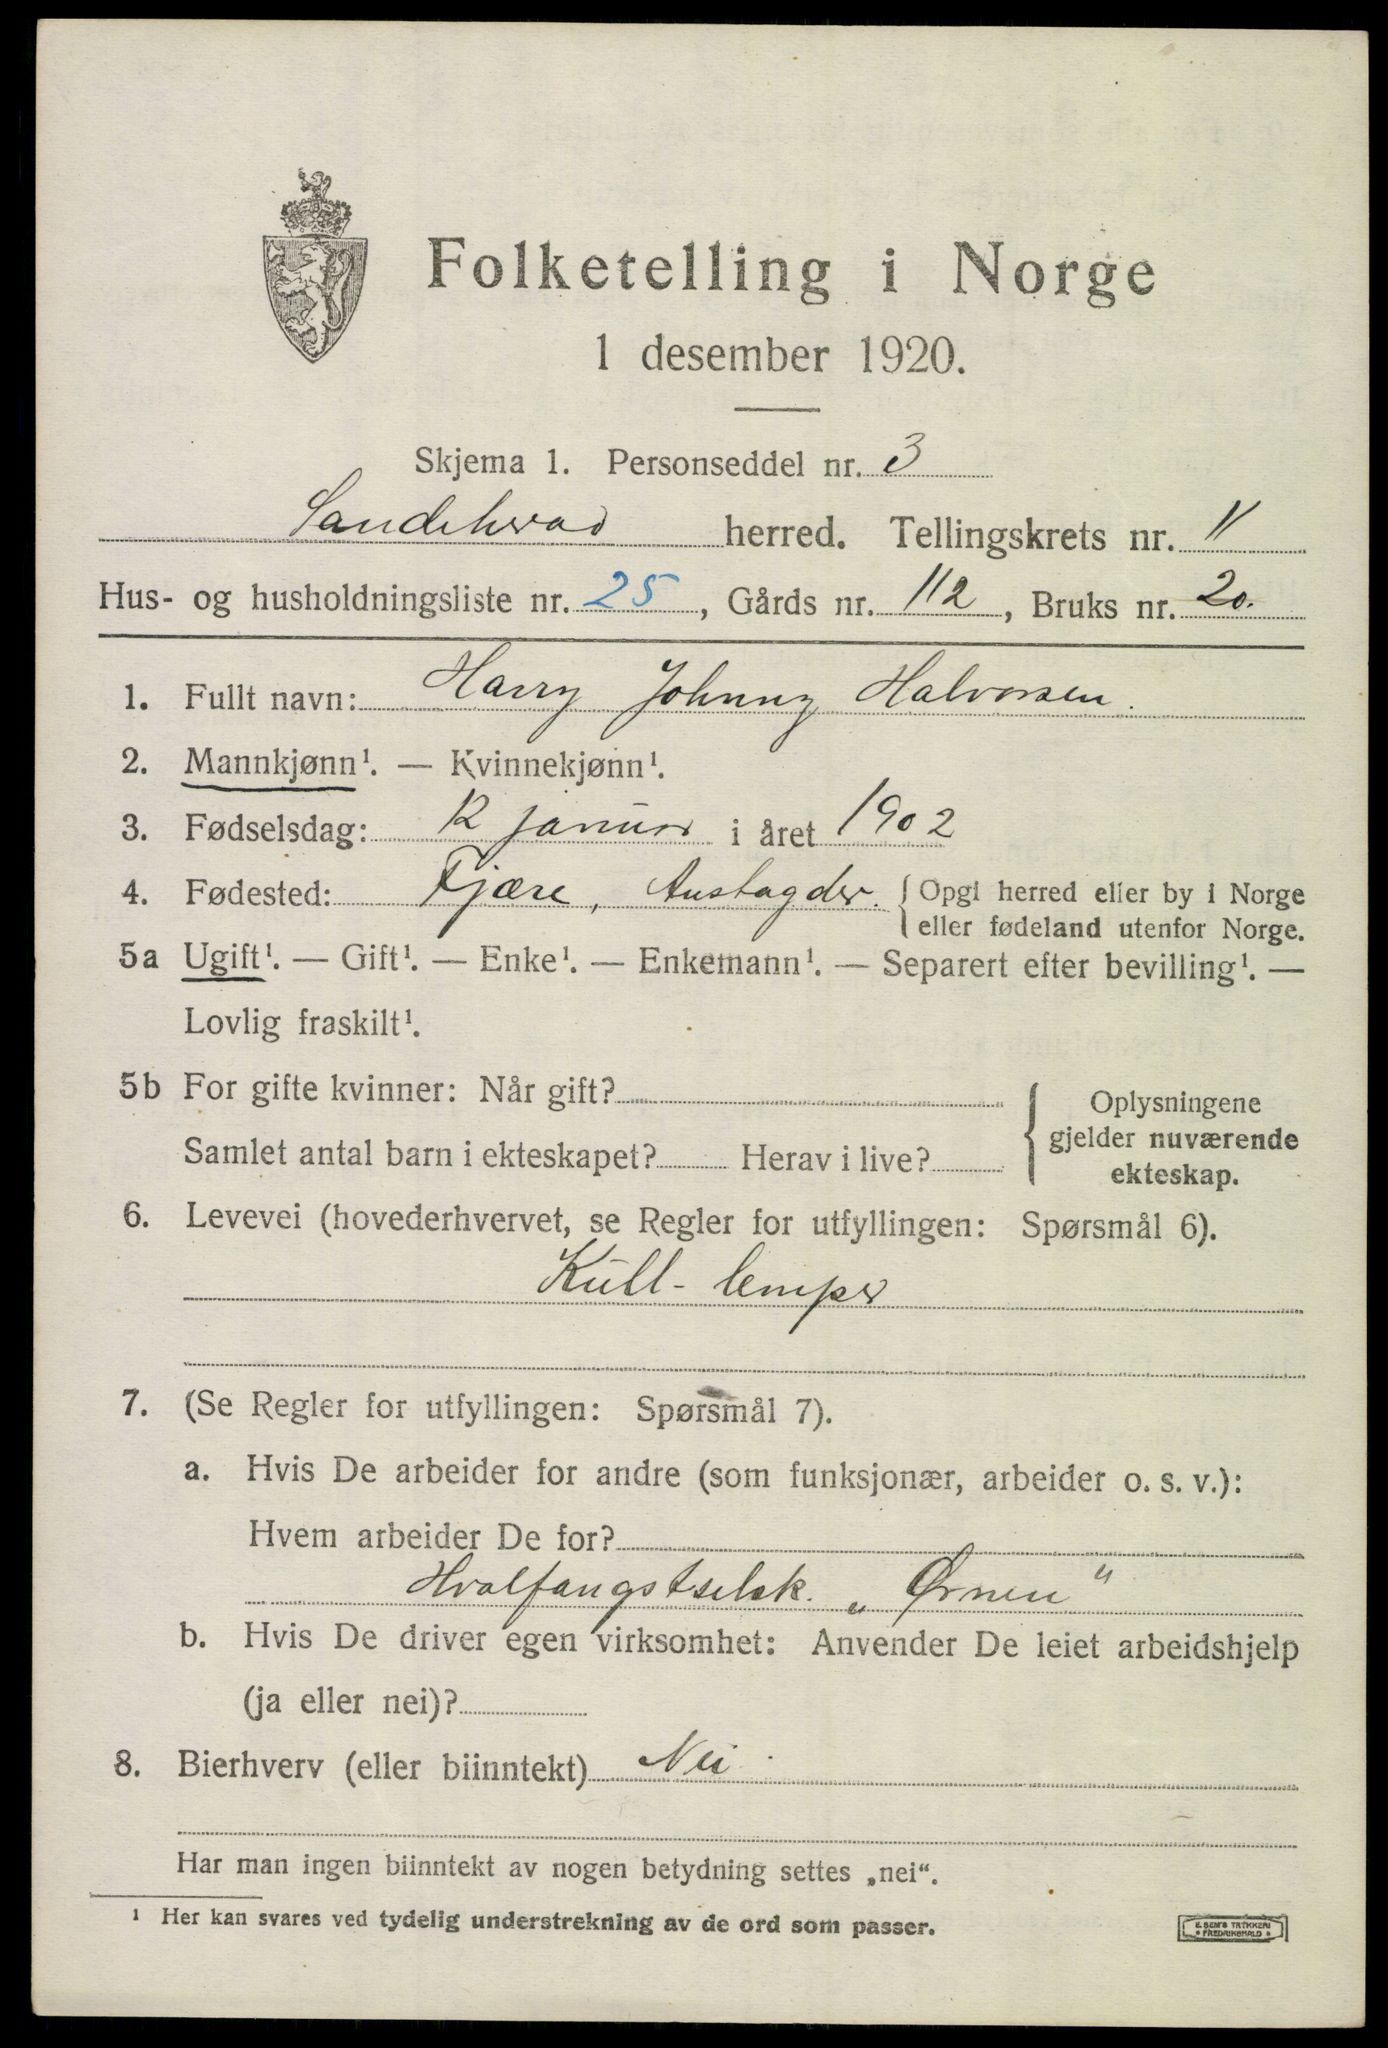 Folketelling i Norge
1 desember 1920.
Skjema 1. Personseddel nr. 3
Sandeherad herred. Tellingskrets nr. 11
Hus- og husholdningsliste nr. 25, Gårds nr. 112, Bruks nr. 20.
1. Fullt navn: Harry Johnny Halvorsen.
2. Mannkjønn¹. — Kvinnekjønn¹.
3. Fødselsdag: 12 januar i året 1902
4. Fødested: Fjære, Austagder. { Opgi herred eller by i Norge
eller fødeland utenfor Norge.
5a Ugift¹. — Gift¹. — Enke¹. — Enkemann¹. — Separert efter bevilling¹. —
Lovlig fraskilt¹.
5b For gifte kvinner: Når gift?
Samlet antal barn i ekteskapet? Herav i live?
Oplysningene
gjelder nuværende
ekteskap.
6. Levevei (hovederhvervet, se Regler for utfyllingen: Spørsmål 6).
Kull-lemper
7. (Se Regler for utfyllingen: Spørsmål 7).
a. Hvis De arbeider for andre (som funksjonær, arbeider o. s. v.):
Hvem arbeider De for?
Hvalfangstselsk. „Ørnen"
b. Hvis De driver egen virksomhet: Anvender De leiet arbeidshjelp
(ja eller nei)?
8. Bierhverv (eller biinntekt) Nei.
Har man ingen biinntekt av nogen betydning settes „nei“.
¹ Her kan svares ved tydelig understrekning av de ord som passer.
E. SEM'S TRYKKERI
* FREDRIKSHALD *